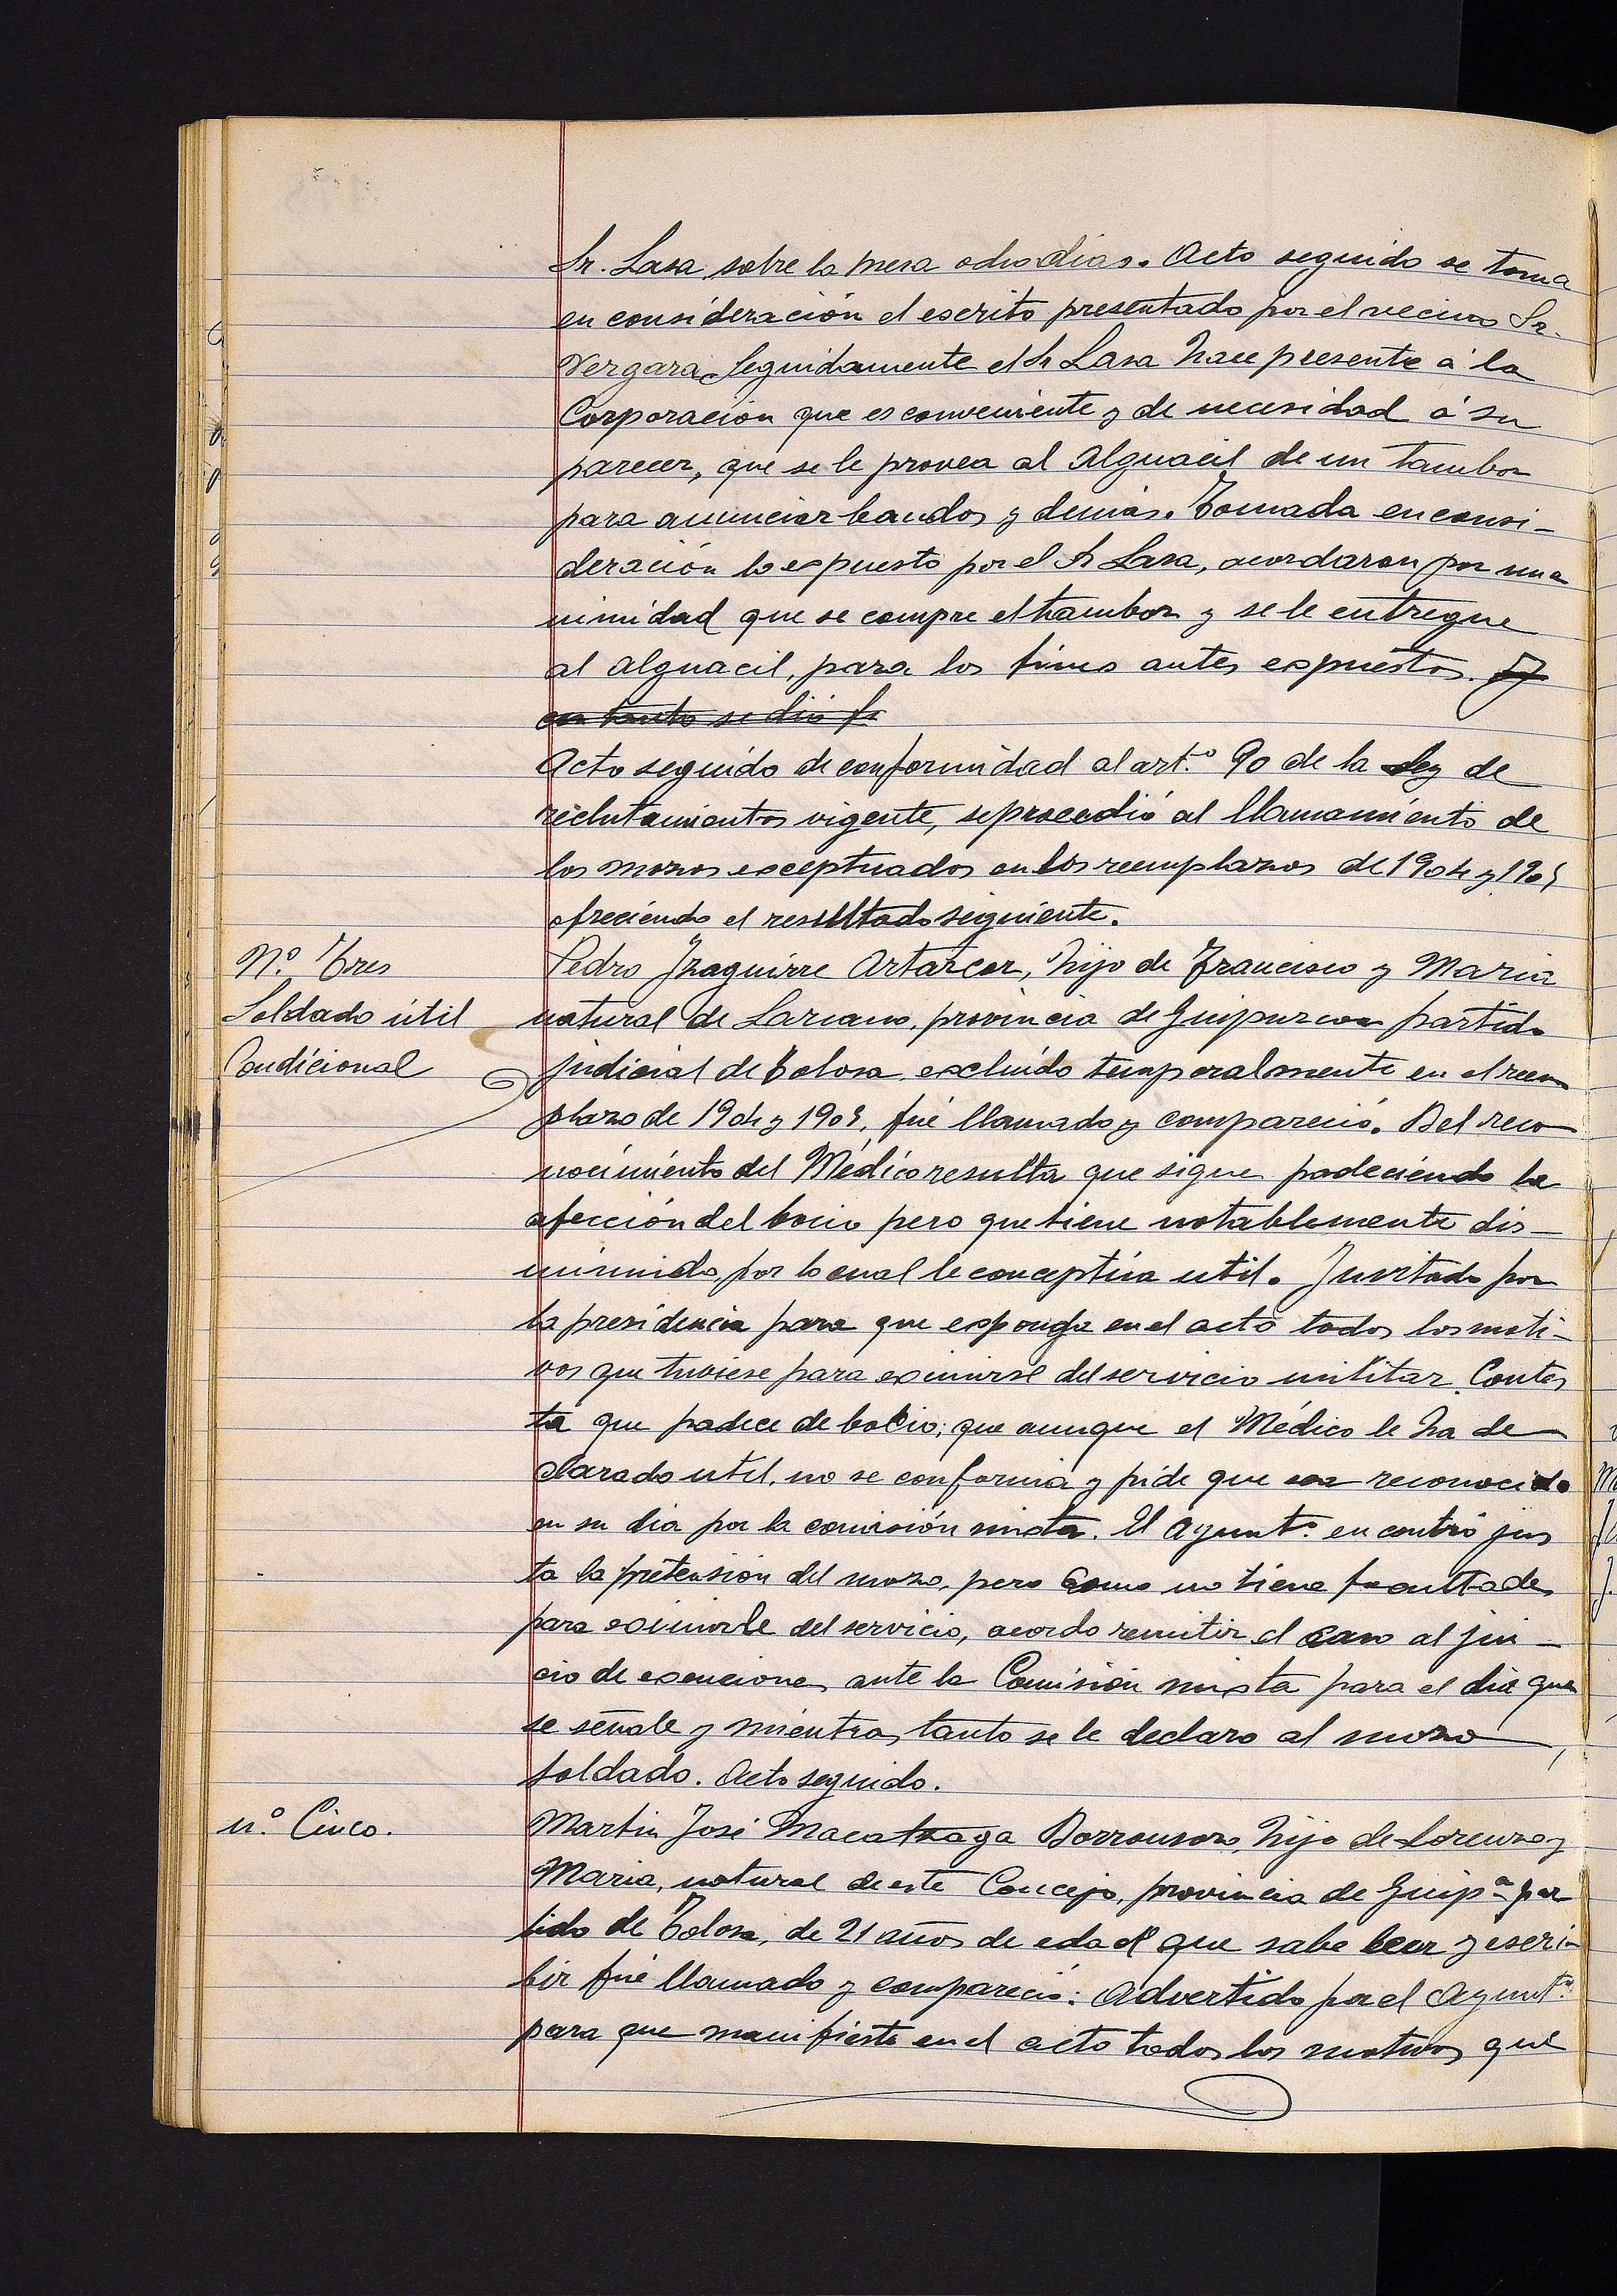 Sr. Lasa sobre la mesa ocho dias. Acto seguido se toma
en consideración el escrito presentado por el vecino Sr.
Vergara Seguidamente el Sr Lasa hace presente á la
Corporación que es conveniente y de necesidad á su
parecer, que se le provea al Alguacil de un tambor
para anunciar bandos y demás. Tomada en consi-
deración lo expuesto por el Sr Lasa, acordaron por una
nimidad que se compre el tambor y se le entregue
al alguacil, para los fines antes expuestos.
en tanto se dió fe
Acto seguido de conformidad al art.º 90 de la Ley de
reclutamientos vigente, se procedió al llamamiento de
los mozos exceptuados en los reemplazos de 1904 y 1905
ofreciendo el resultado siguiente.
N.º Tres
Soldado útil
Condicional
Pedro Izaguirre Artarcor, hijo de Francisco y Maria
natural de Lazcano, provincia de Guipuzcoa partido
judicial de Tolosa, excluido temporalmente en el reem
plazo de 1904 y 1905, fué llamado y compareció. Del reco
nocimiento del Médico resulta que sigue padeciendo la
afección del bocio pero que tiene notablemente dis-
minuido, por lo cual le conceptúa util. Invitado por
la presidencia para que exponga en el acto todos los moti-
vos que tuviese para eximirse del servicio militar. Contes
ta que padece de bocio; que aunque el Médico le ha de
clarado util, no se conforma y pide que sea reconocido
en su dia por la comisión mixta. El Ayunt.º encontró jus
ta la pretensión del mozo, pero como no tiene facultades
para eximirle del servicio, acordo remitir el caso al jui-
cio de exenciones ante la Comisión mixta para el dia que
se señale y mientras tanto se le declaro al mozo
soldado. Acto seguido.
n.º Cinco.
Martin José Macatzaga Borronsoro, hijo de Lorenzo y
Maria, natural de este Concejo, provincia de Guipª par
tido de Tolosa, de 21 años de edad que sabe leer y escri-
bir fué llamado y compareció: Advertido por el Ayuntº
para que manifieste en el acto todos los motivos que